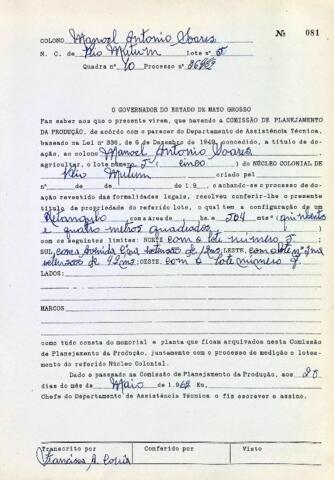 Nº 081
COLONO Manoel Antonio Soares
N. C. de Rio Mutum Lote nº 5
Quadra nº 10 Processo nº
O GOVERNADOR DO ESTADO DE MATO GROSSO
Faz saber aos que o presente virem, que havendo a COMISSÃO DE PLANEJAMENTO
DA PRODUÇÃO, de acôrdo com o parecer do Departamento de Assistência Técnica,
baseado na Lei nº 336, de 6 de Dezembro de 1949, concedido, a título de do-
ação, ao colono Manoel Antonio Soares
agricultor, o lote número 5 (cinco) do NÚCLEO COLONIAL DE
Rio Mutum criado pel
nº de de de 19 , e achando-se o processo de do-
ação revestido das formalidades legais, resolveu conferir-lhe o presente
título de propriedade do referido lote, o qual tem a configuração de um
Retangulo com a área de ha. e 504 mts² (quinhentos
e quatro metros quadrados)
com os seguintes limites: NORTE com o lote número
SUL, com a Avenida C na extensão de 12 ms; LESTE, com o lote nº 3 na
extensão de 42 ms; OESTE, com o lote número 7.
LADOS:
MARCOS
como tudo consta do memorial e planta que ficam arquivados nesta Comissão
de Planejamento da Produção, juntamente com o processo de medição e lotamen-
to do referido Núcleo Colonial.
Dado e passado na Comissão de Planejamento da Produção, aos 28
dias do mês de Maio de 1962 Eu,
Chefe do Departamento de Assistência Técnica o fiz escrever e assino.
Transcrito por Conferido por Visto
Francisco A.